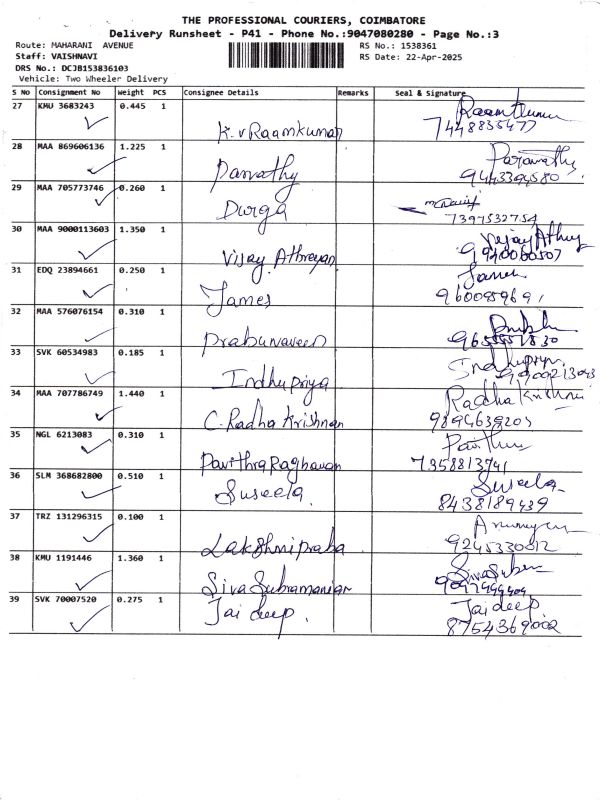 THE PROFESSIONAL COURIERS, COIMBATORE
Delivery Runsheet - P41 - Phone No.:9047080280 - Page No.:3
Route: MAHARANI AVENUE RS No.: 1538361
Staff: VAISHNAVI RS Date: 22-Apr-2025
DRS No.: DCJB153836103
Vehicle: Two Wheeler Delivery
S No Consignment No Weight PCS Consignee Details Remarks Seal & Signature
27 KMU 3683243 0.445 1
K.v Raamkumar 7448835477
28 MAA 869606136 1.225 1 Parvathy
Parvathy 9443394580
29 MAA 705773746 0.260 1
Durga 7397532754
30 MAA 9000113603 1.350 1
Vijay Athreyan
31 EDQ 23894661 0.250 1
James
32 MAA 576076154 0.310 1
Prabunaveen
33 SVK 60534983 0.185 1 Indhupriya
Indhupriya
34 MAA 707786749 1.440 1 Radha Krishnan
C. Radha Krishnan 9894639203
35 NGL 6213083 0.310 1
Pavithra Raghavan 7358813741
36 SLM 368682800 0.510 1 Suseela
Suseela 8438189439
37 TRZ 131296315 0.100 1
Lakshmipraba 9245330012
38 KMU 1191446 1.360 1
Siva Subramanian
39 SVK 70007520 0.275 1 Jaideep
Jaideep 8754369002